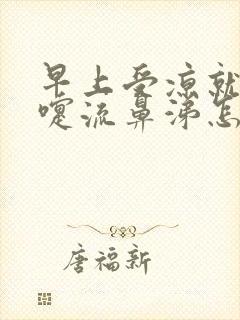 早上受凉就
嚏流鼻涕怎
唐福新